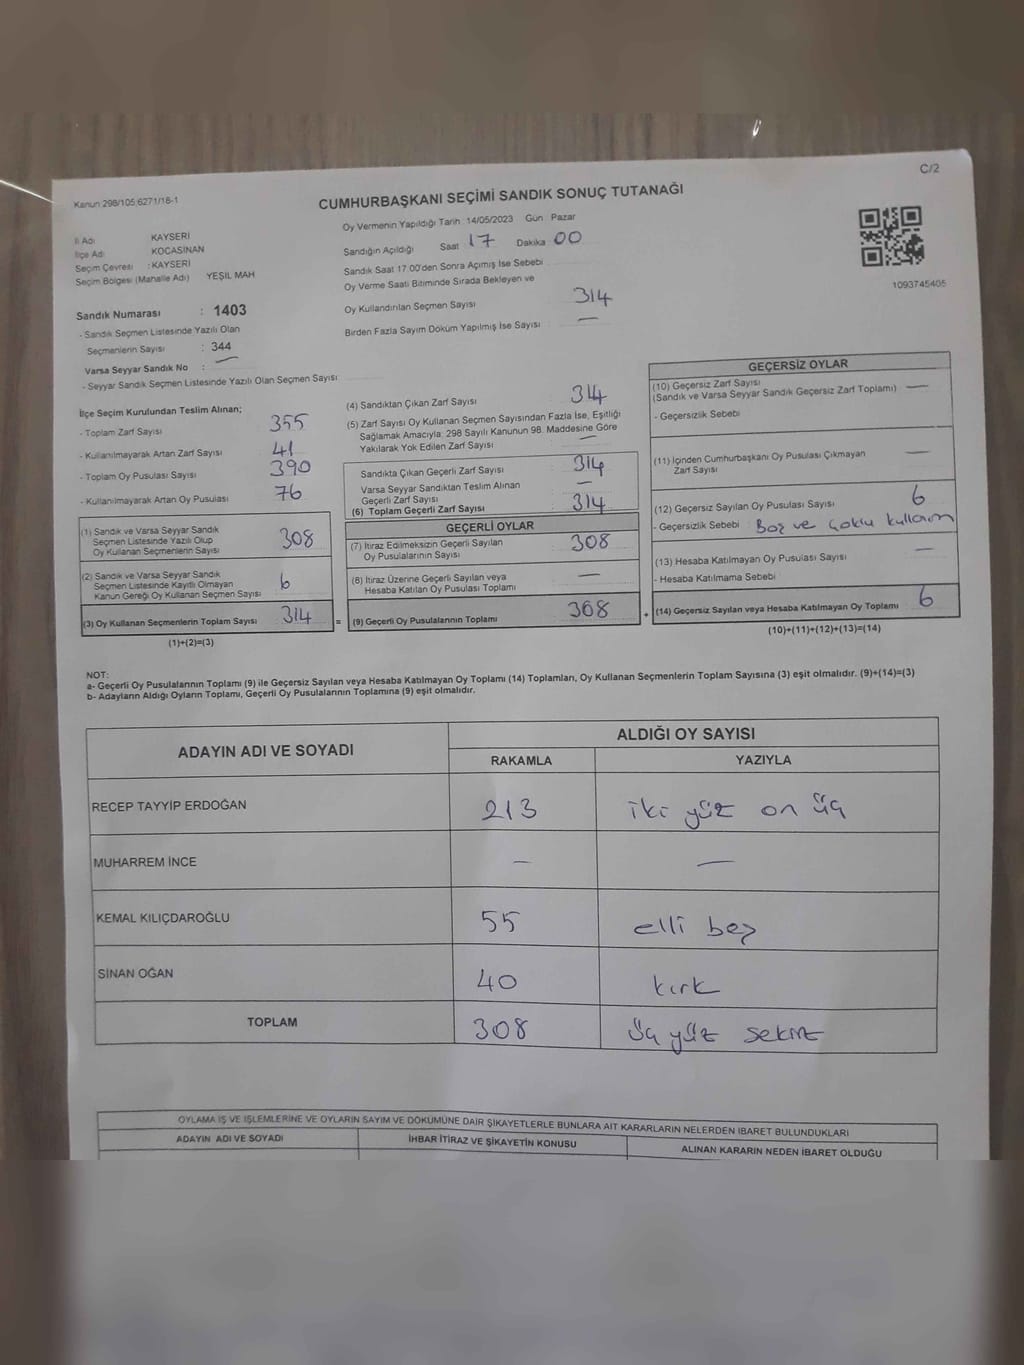 C/2
Kanun 298/105;6271/18-1
CUMHURBAŞKANI SEÇİMİ SANDIK SONUÇ TUTANAĞI
Oy Vermenin Yapıldığı Tarih 14/05/2023 Gün Pazar
İl Adı KAYSERİ
İlçe Adı KOCASİNAN
Seçim Çevresi : KAYSERİ
Seçim Bölgesi (Mahalle Adı) YEŞİL MAH
Sandığın Açıldığı Saat 17 Dakika 00
Sandık Saat 17.00'den Sonra Açımış İse Sebebi
Oy Verme Saati Bitiminde Sırada Bekleyen ve
Oy Kullandırılan Seçmen Sayısı 314
Birden Fazla Sayım Döküm Yapılmış İse Sayısı —
1093745405
Sandık Numarası : 1403
- Sandık Seçmen Listesinde Yazılı Olan
Seçmenlerin Sayısı : 344
Varsa Seyyar Sandık No : —
- Seyyar Sandık Seçmen Listesinde Yazılı Olan Seçmen Sayısı:
İlçe Seçim Kurulundan Teslim Alınan;
- Toplam Zarf Sayısı 355
- Kullanılmayarak Artan Zarf Sayısı 41
- Toplam Oy Pusulası Sayısı 390
- Kullanılmayarak Artan Oy Pusulası 76
(1) Sandık ve Varsa Seyyar Sandık
Seçmen Listesinde Yazılı Olup
Oy Kullanan Seçmenlerin Sayısı 308
(2) Sandık ve Varsa Seyyar Sandık
Seçmen Listesinde Kayıtlı Olmayan
Kanun Gereği Oy Kullanan Seçmen Sayısı 6
(3) Oy Kullanan Seçmenlerin Toplam Sayısı 314 =
(1)+(2)=(3)
(4) Sandıktan Çıkan Zarf Sayısı 314
(5) Zarf Sayısı Oy Kullanan Seçmen Sayısından Fazla İse, Eşitliği
Sağlamak Amacıyla, 298 Sayılı Kanunun 98. Maddesine Göre
Yakılarak Yok Edilen Zarf Sayısı —
Sandıkta Çıkan Geçerli Zarf Sayısı 314
Varsa Seyyar Sandıktan Teslim Alınan
Geçerli Zarf Sayısı —
(6) Toplam Geçerli Zarf Sayısı 314
GEÇERLİ OYLAR
(7) İtiraz Edilmeksizin Geçerli Sayılan
Oy Pusulalarının Sayısı 308
(8) İtiraz Üzerine Geçerli Sayılan veya
Hesaba Katılan Oy Pusulası Toplamı —
(9) Geçerli Oy Pusulalarının Toplamı 308 +
GEÇERSİZ OYLAR
(10) Geçersiz Zarf Sayısı —
(Sandık ve Varsa Seyyar Sandık Geçersiz Zarf Toplamı)
- Geçersizlik Sebebi
(11) İçinden Cumhurbaşkanı Oy Pusulası Çıkmayan
Zarf Sayısı —
(12) Geçersiz Sayılan Oy Pusulası Sayısı 6
- Geçersizlik Sebebi Boş ve çoklu kullanım
(13) Hesaba Katılmayan Oy Pusulası Sayısı —
- Hesaba Katılmama Sebebi
(14) Geçersiz Sayılan veya Hesaba Katılmayan Oy Toplamı 6
(10)+(11)+(12)+(13)=(14)
NOT:
a- Geçerli Oy Pusulalarının Toplamı (9) ile Geçersiz Sayılan veya Hesaba Katılmayan Oy Toplamı (14) Toplamları, Oy Kullanan Seçmenlerin Toplam Sayısına (3) eşit olmalıdır. (9)+(14)=(3)
b- Adayların Aldığı Oyların Toplamı, Geçerli Oy Pusulalarının Toplamına (9) eşit olmalıdır.
ADAYIN ADI VE SOYADI ALDIĞI OY SAYISI
RAKAMLA YAZIYLA
RECEP TAYYİP ERDOĞAN 213 iki yüz on üç
MUHARREM İNCE — —
KEMAL KILIÇDAROĞLU 55 elli beş
SİNAN OĞAN 40 kırk
TOPLAM 308 üç yüz sekiz
OYLAMA İŞ VE İŞLEMLERİNE VE OYLARIN SAYIM VE DÖKÜMÜNE DAİR ŞİKAYETLERLE BUNLARA AİT KARARLARIN NELERDEN İBARET BULUNDUKLARI
ADAYIN ADI VE SOYADI İHBAR İTİRAZ VE ŞİKAYETİN KONUSU ALINAN KARARIN NEDEN İBARET OLDUĞU